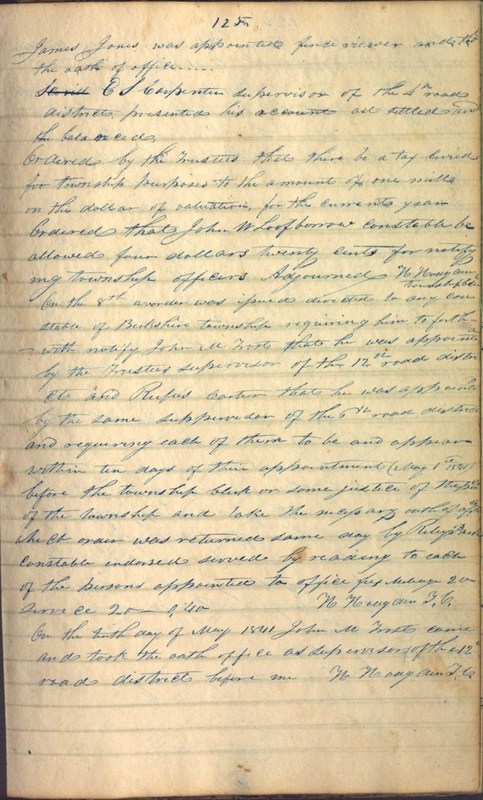 125
James Jones was appointed fence viewer and
the oath of office
E S Carpenter supervisor of the 4th road
district presented his account all settled and
the balanced
Ordered by the Trustees that there be a tax levied
for township purposes to the amount of one mills
on the dollar of valuation, for the current year
Ordered that John W Loofborrow constable be
allowed four dollars twenty cents for notify
ing township officers Adjourned
On the 8th a order was isued directed to any con
stable of Berkshire township requiring him to forth
with notify John M Trost that he was appointed
by the Trustees supervisor of the 12th road district
and Rufus that he was appointed
by the same suppervisor of the road district
and requiring each of them to be and appear
within ten days of their appointment (May 1st
before the township clerk or some justice of the
of the township and take the oath of
which order was returned same day by
constable endorsed served by reading to each
of the persons appointed to office fees Milage 20
Service 20 0,40
On the tenth day of May 1841 John M Trost came
and took the oath office as supervisor of the 12th
road district before me